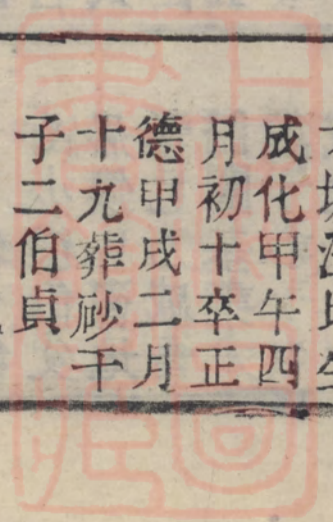 成化甲午四
月初十卒正
德甲戌二月
十九葬砂干
子二伯貞